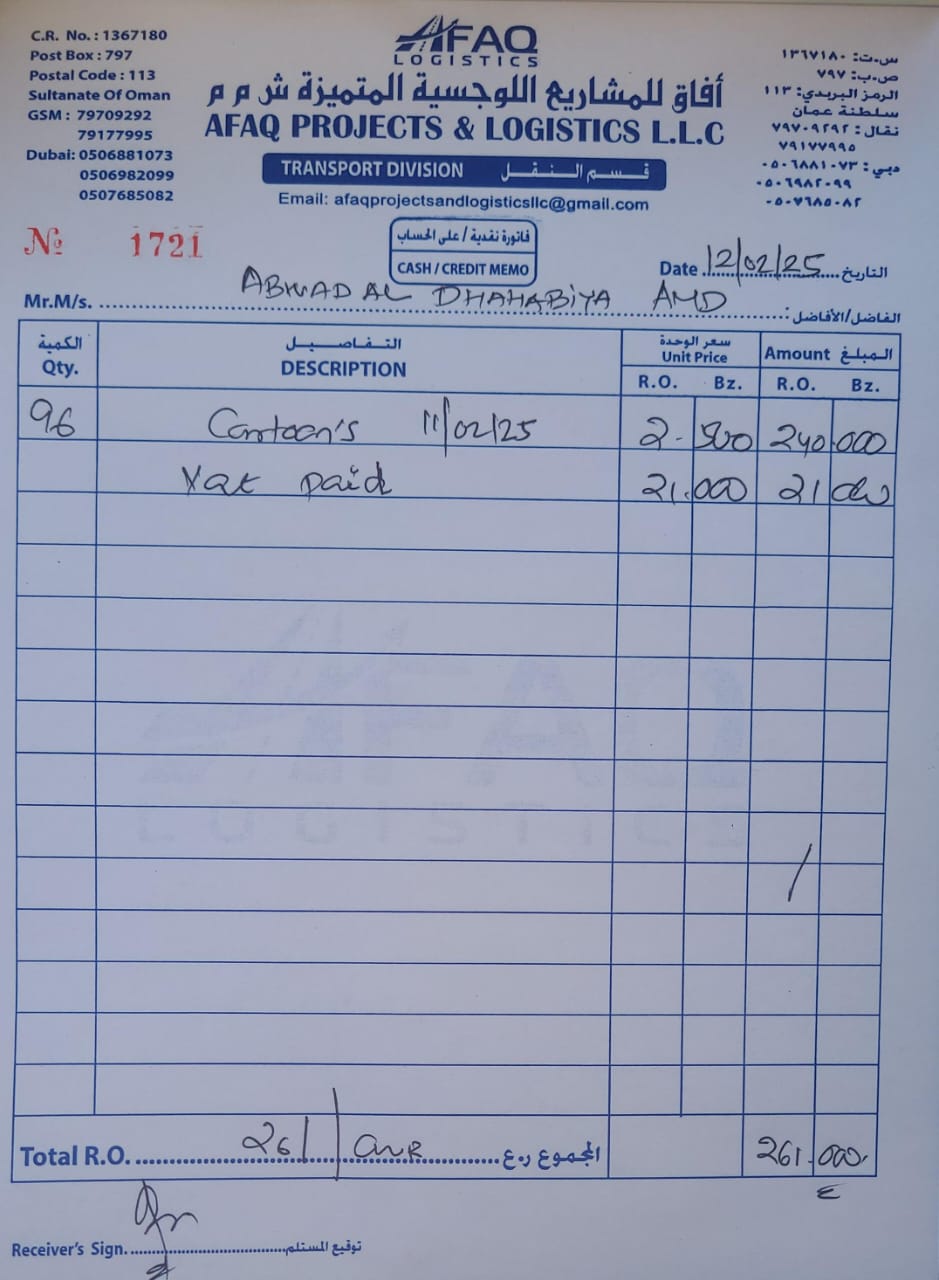 C.R. No. : 1367180
Post Box : 797
Postal Code : 113
Sultanate Of Oman
GSM : 79709292
79177995
Dubai: 0506881073
0506982099
0507685082
AFAQ
LOGISTICS
أفاق للمشاريع اللوجسية المتميزة ش م م
AFAQ PROJECTS & LOGISTICS L.L.C
TRANSPORT DIVISION قسم النقل
Email: afaqprojectsandlogisticsllc@gmail.com
س.ت: ١٣٦٧١٨٠
ص.ب: ٧٩٧
الرمز البريدي: ١١٣
سلطنة عمان
نقال : ٧٩٧٠٩٢٩٢
٧٩١٧٧٩٩٥
دبي: ٠٥٠٦٨٨١٠٧٣
٠٥٠٦٩٨٢٠٩٩
٠٥٠٧٦٨٥٠٨٢
№ 1721
فاتورة نقدية / على الحساب
CASH / CREDIT MEMO
Date 12/02/25 التاريخ
Mr.M/s. ABWAD AL DHAHABIYA AMD الفاضل/الأفاضل:
الكمية التفاصيل سعر الوحدة المبلغ
Qty. DESCRIPTION Unit Price Amount
R.O. Bz. R.O. Bz.
96 Cartoon's 11/02/25 2.500 240.000
Vat paid 21.000 21 000
Total R.O. 261 OMR المجموع ر.ع 261.000
Receiver's Sign. توقيع المستلم
AFAQ
LOGISTICS